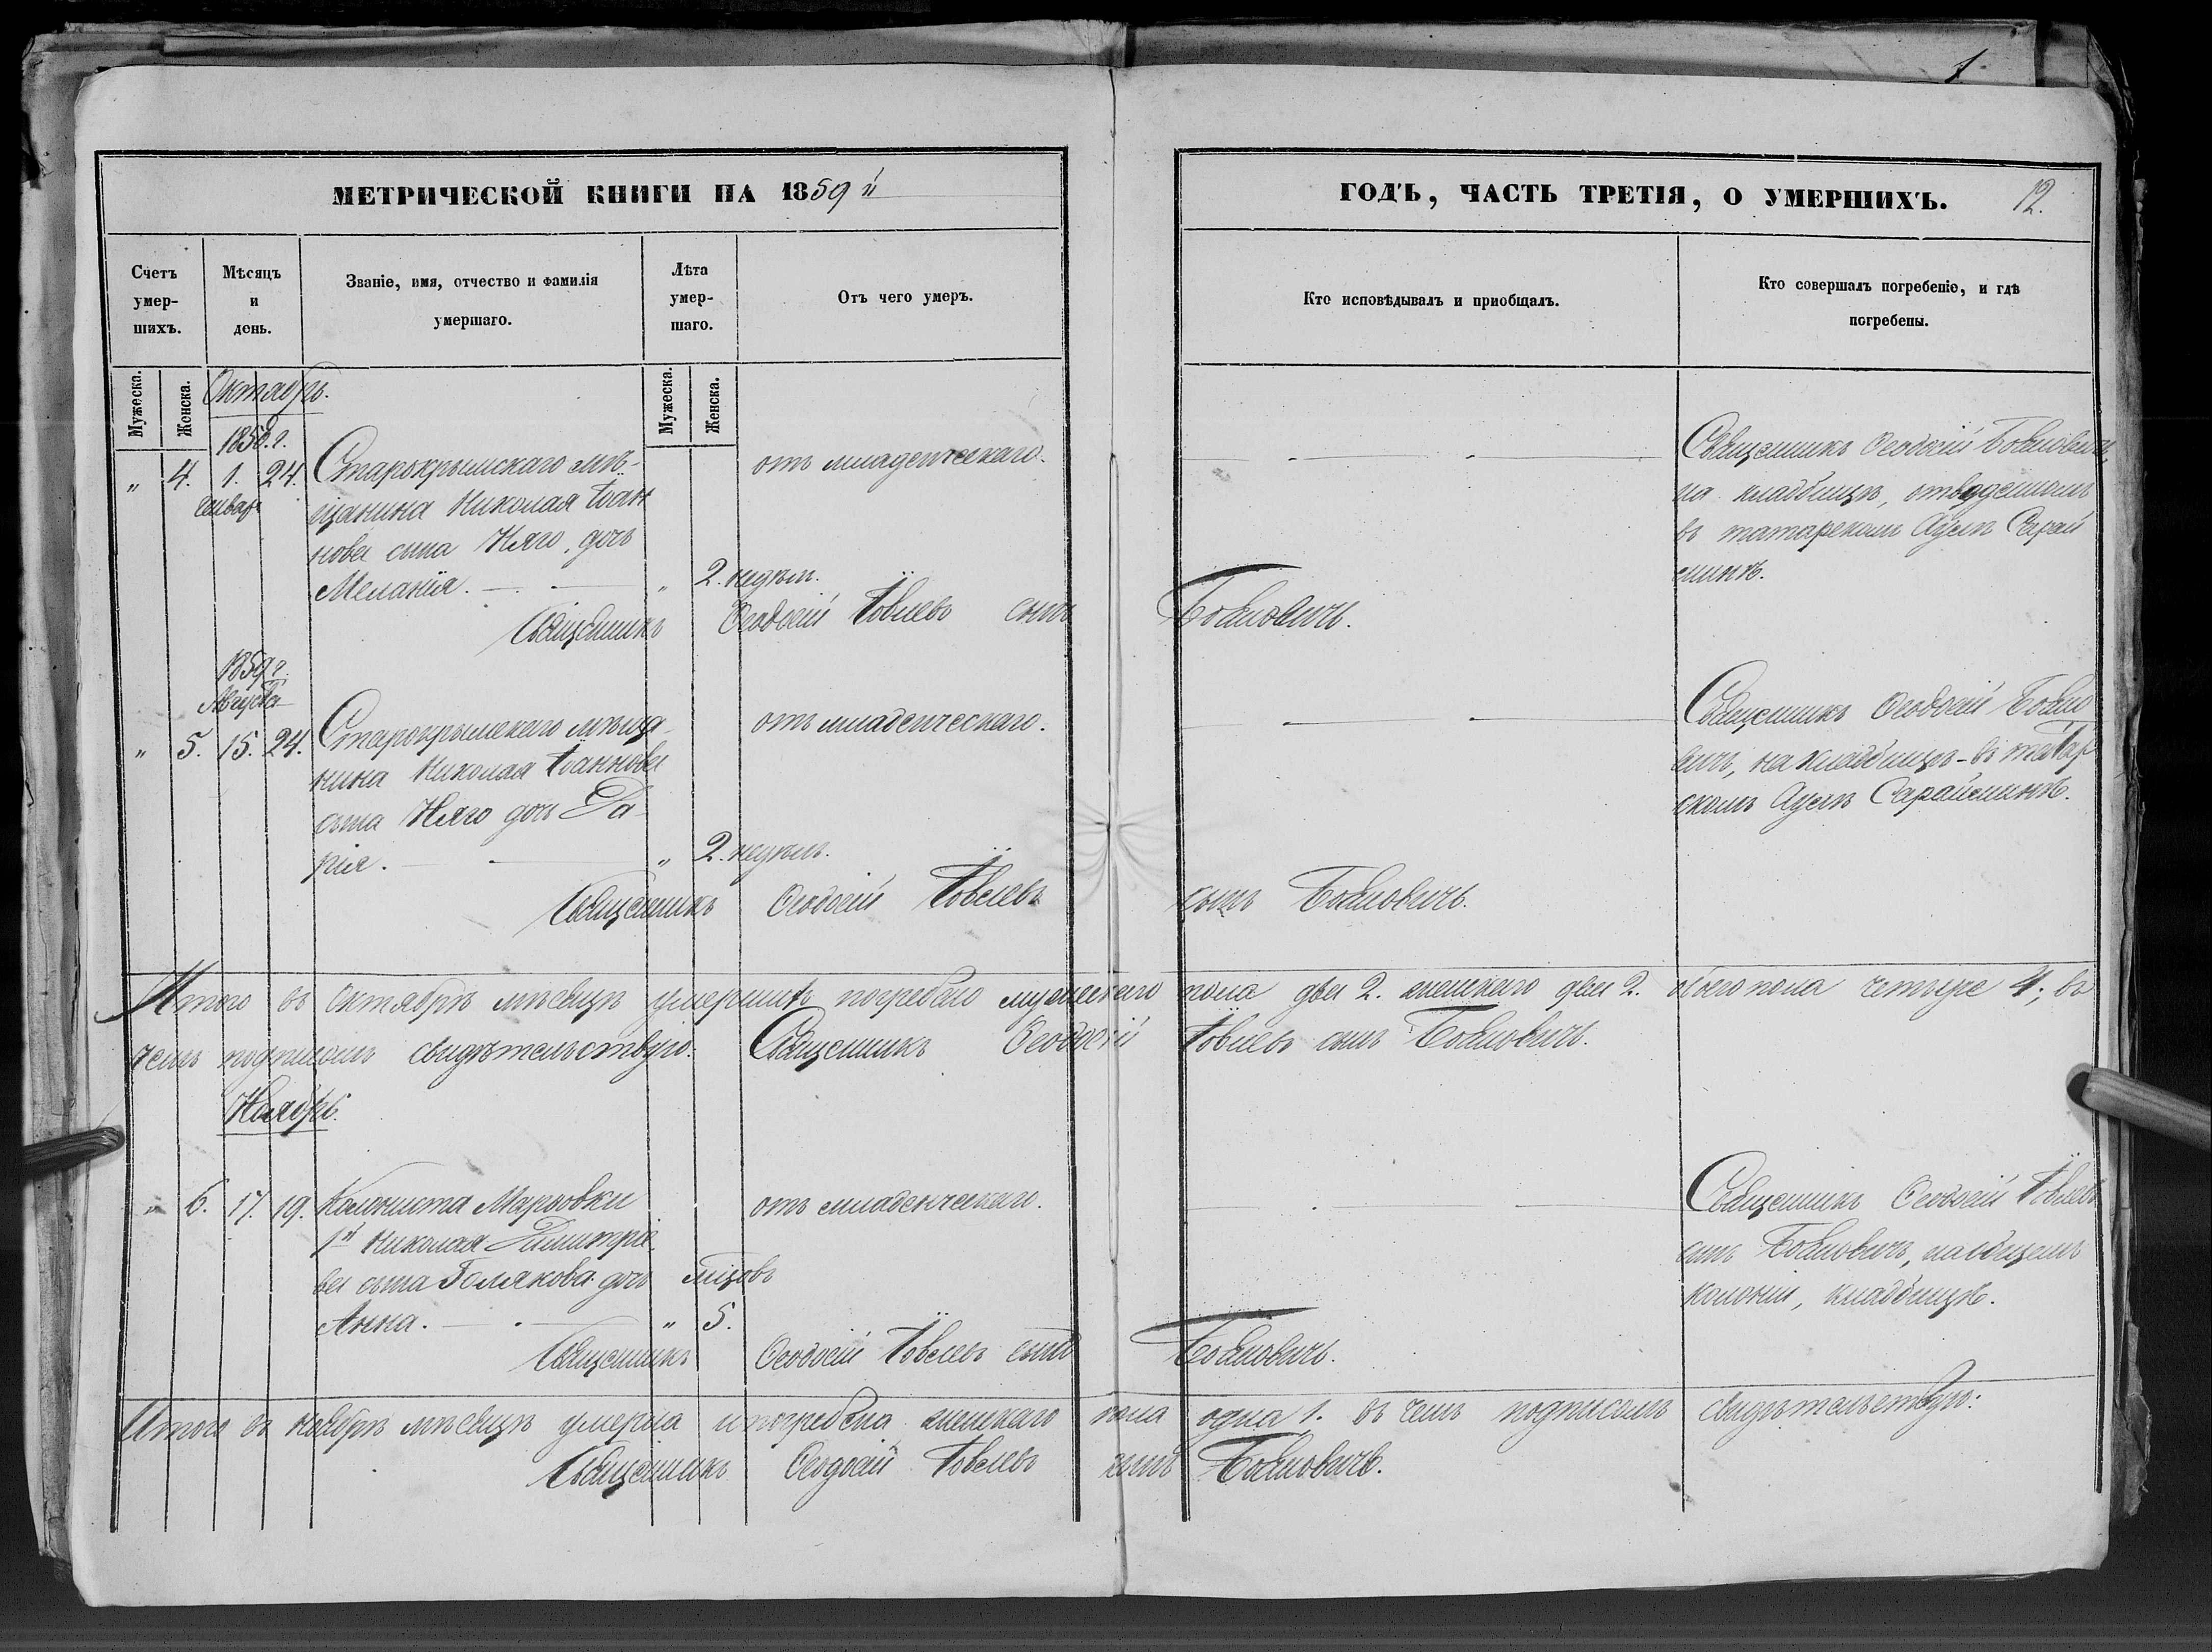 1
МЕТРИЧЕСКОЙ КНИГИ НА 1859й
ГОДЪ, ЧАСТЬ ТРЕТІЯ, О УМЕРШИХЪ. 12.
Счетъ умер-шихъ.
Мѣсяцъ и день.
Званіе, имя, отчество и фамилія умершаго.
Лѣта умер-шаго.
Отъ чего умеръ.
Кто исповѣдывалъ и приобщалъ.
Кто совершалъ погребеніе, и гдѣ погребены.
Мужеска. Женска.
Мужеска. Женска.
Октябрь.
1858. г.
„ 4. 1. 24.
Январ.
Старокрымскаго мѣ-
щанина Николая Іоан
нова сына Няго, дочь
Меланія. „ 2. недѣли.
отъ младенческаго.
Священникъ Ѳеодосій Бояновичъ,
на кладбищѣ, отведенномъ
въ татарскомъ Аулѣ Сарай
минѣ.
Священникъ Ѳеодосій Іовлевъ сынъ Бояновичъ.
1859 г.
Августа
„ 5. 15. 24.
Старокрымскаго мѣща-
нина Николая Іоаннова
сына Няго дочь Да-
рія. „ 2. недѣли.
отъ младенческаго.
Священникъ Ѳеодосій Бояно
вичъ, на кладбищѣ - въ татар
скомъ Аулѣ Сарайминѣ.
Священникъ Ѳеодосій Іовлевъ сынъ Бояновичъ.
Итого въ Октябрѣ мѣсяцѣ умершихъ погребено мужескаго пола два 2. женскаго два 2. обоего пола четыре 4; въ
чемъ подписомъ свидѣтельствую: Священникъ Ѳеодосій Іовлевъ сынъ Бояновичъ.
Ноябрь.
„ 6. 17. 19.
Колониста Марьовки
1й Николая Димитріе-
ва сына Полякова дочь
Анна. „ 5.
мѣсяцовъ
отъ младенческаго.
Священникъ Ѳеодосій Іовлевъ
сынъ Бояновичъ, на общемъ
колоніи, кладбищѣ.
Священникъ Ѳеодосій Іовлевъ сынъ Бояновичъ.
Итого въ ноябрѣ мѣсяцѣ умерла и погребена женскаго пола одна 1. въ чемъ подписомъ свидѣтельствую:
Священникъ Ѳеодосій Іовлевъ сынъ Бояновичъ.